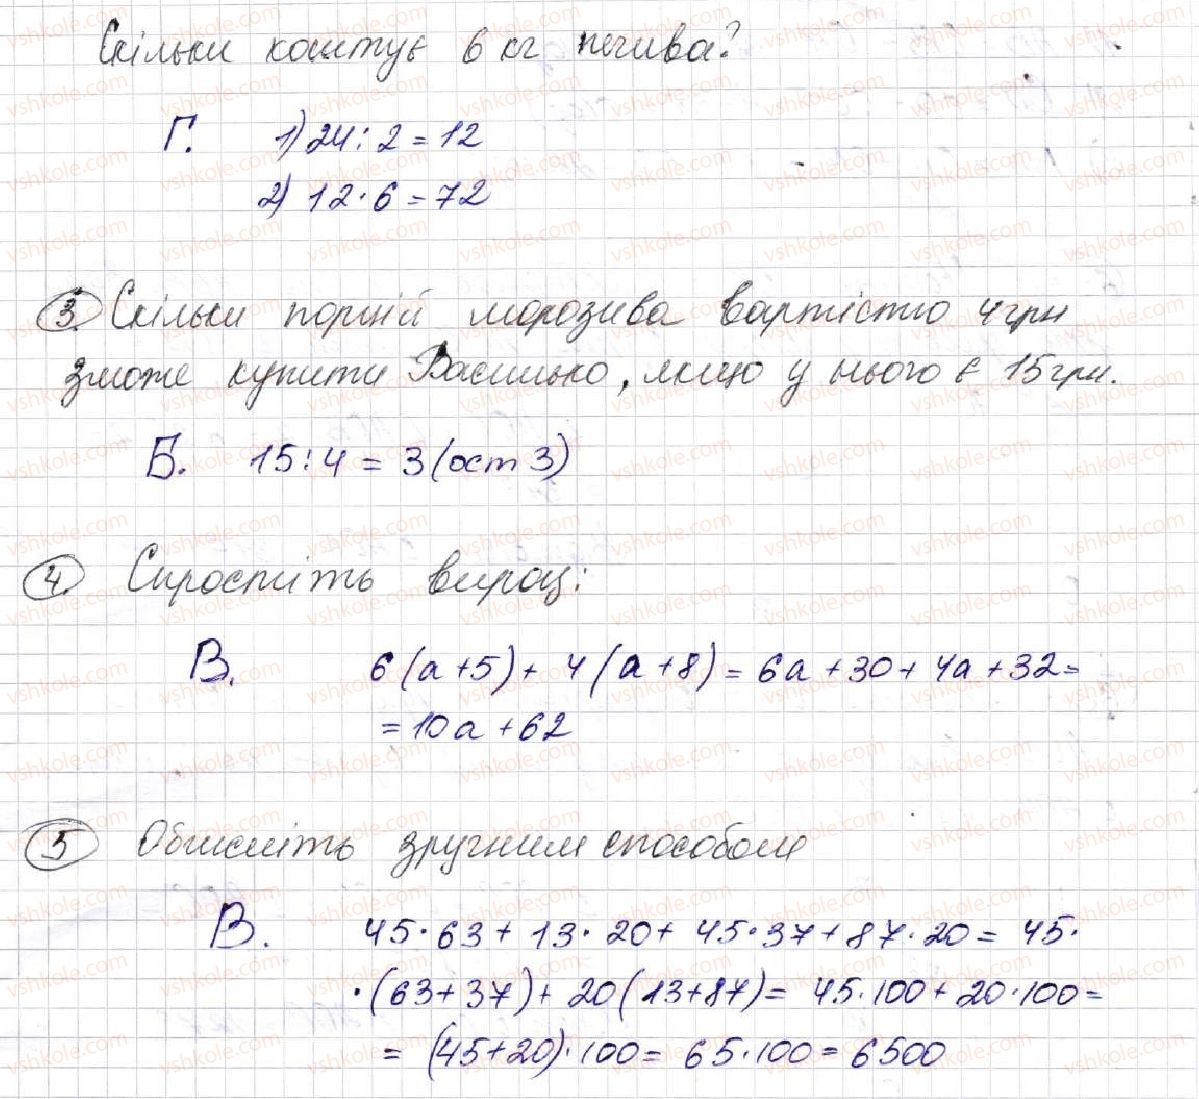 Скільки коштує 6 кг печива?
Г. 1) 24 : 2 = 12
2) 12 · 6 = 72
3. Скільки порцій морозива вартістю 4 грн
зможе купити Василько, якщо у нього є 15 грн.
Б. 15 : 4 = 3 (ост 3)
4. Спростіть вираз:
В. 6 (a + 5) + 4 (a + 8) = 6a + 30 + 4a + 32 =
= 10a + 62
5 Обчисліть зручним способом
В. 45 · 63 + 13 · 20 + 45 · 37 + 87 · 20 = 45 ·
· (63 + 37) + 20 (13 + 87) = 45 · 100 + 20 · 100 =
= (45 + 20) · 100 = 65 · 100 = 6500
vshkole.com